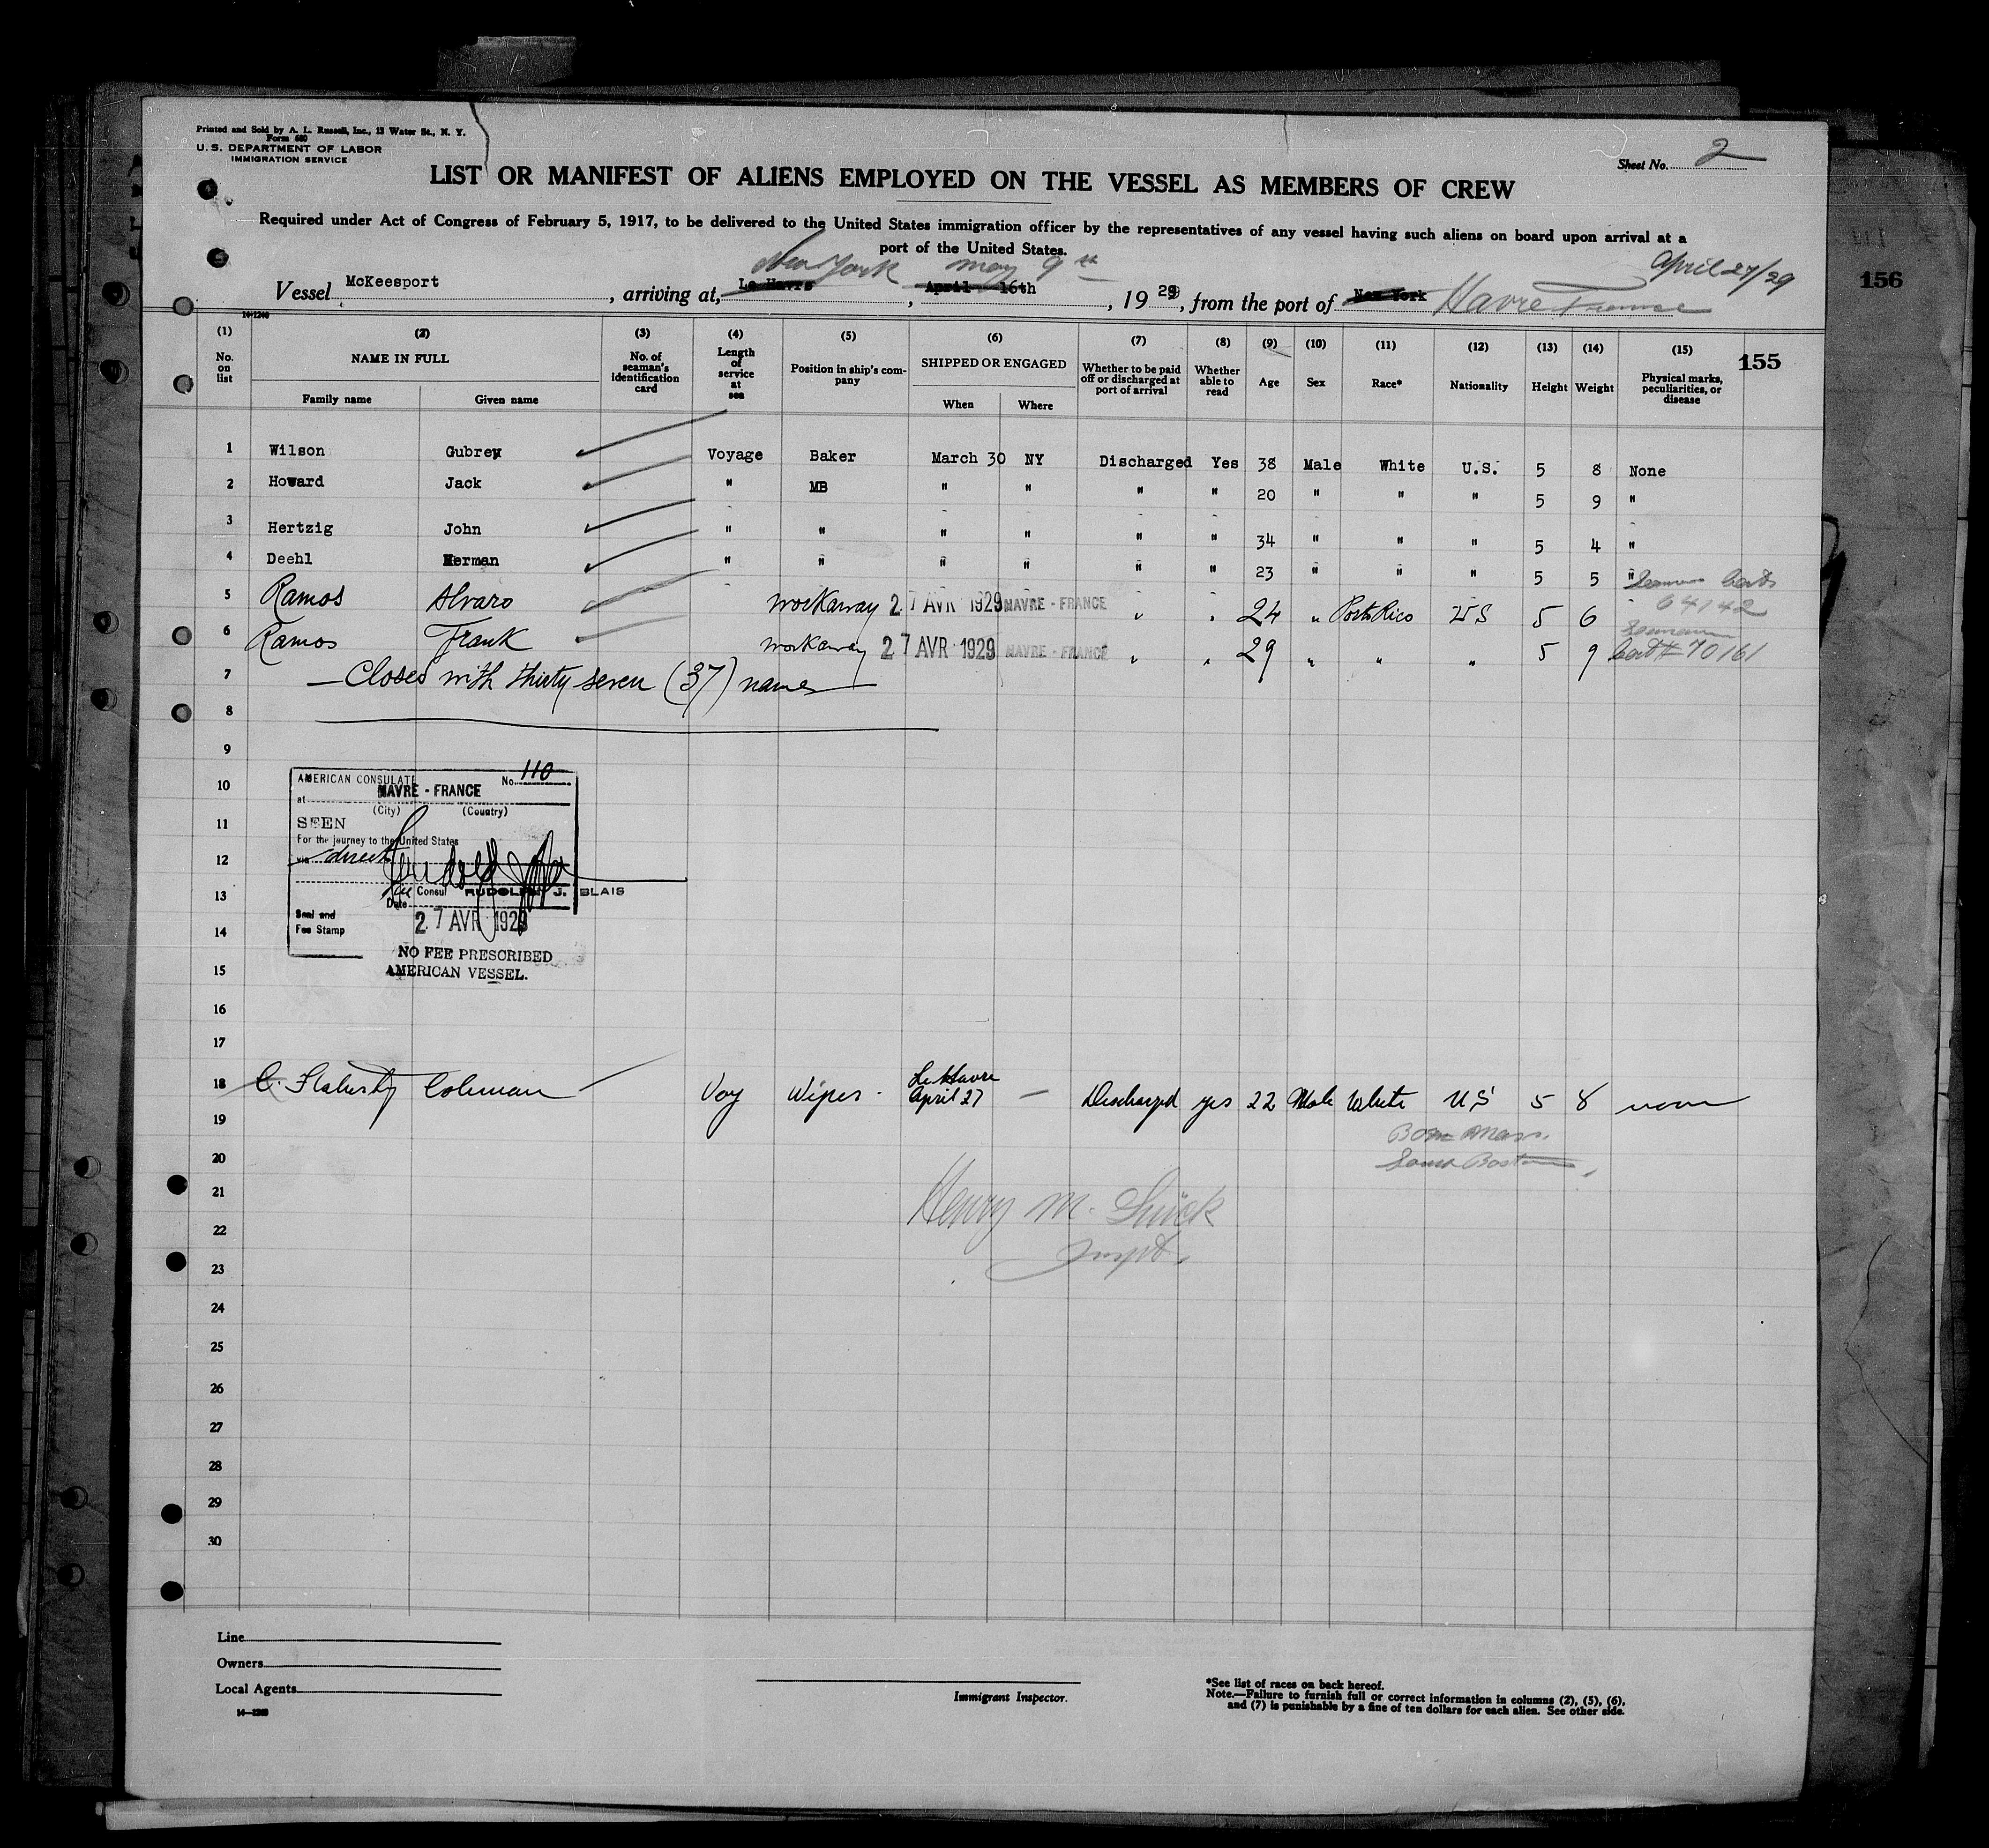 Printed and Sold by A. L. Russell, Inc., 13 Water St., N. Y.
Form 680
U. S. DEPARTMENT OF LABOR
IMMIGRATION SERVICE
Sheet No. 2
LIST OR MANIFEST OF ALIENS EMPLOYED ON THE VESSEL AS MEMBERS OF CREW
Required under Act of Congress of February 5, 1917, to be delivered to the United States immigration officer by the representatives of any vessel having such aliens on board upon arrival at a
port of the United States.
New York may 9th April 27/29
156
Vessel McKeesport, arriving at, Le Havre, April 16th, 1929, from the port of New York Havre France
14-1240
(1) (2) (3) (4) (5) (6) (7) (8) (9) (10) (11) (12) (13) (14) (15)
155
No. on list NAME IN FULL Family name Given name No. of seaman's identification card Length of service at sea Position in ship's company SHIPPED OR ENGAGED When Where Whether to be paid off or discharged at port of arrival Whether able to read Age Sex Race* Nationality Height Weight Physical marks, peculiarities, or disease
1 Wilson Gubrey Voyage Baker March 30 NY Discharged Yes 38 Male White U.S. 5 8 None
2 Howard Jack " MB " " " " 20 " " " 5 9 "
3 Hertzig John " " " " " " 34 " " " 5 4 "
4 Deehl Herman " " " " " " 23 " " " 5 5 "
5 Ramos Alvaro workaway 27 AVR 1929 HAVRE - FRANCE " " 24 " Porto Rico US 5 6 Seamans Card 64142
6 Ramos Frank workaway 27 AVR 1929 HAVRE - FRANCE " " 29 " " " 5 9 Seaman Card # 70161
7 Closed with thirty seven (37) names
8
9
10
11
12
13
14
15
16
17
AMERICAN CONSULATE No. 110
at HAVRE - FRANCE
(City) (Country)
SEEN
For the journey to the United States
via direct
Consul RUDOLPH J. BLAIS
Date
Seal and
Fee Stamp
27 AVR 1929
NO FEE PRESCRIBED
AMERICAN VESSEL.
18 O. Flaherty Coleman Voy Wiper Le Havre April 27 — Discharged yes 22 Male White US 5 8 none
19
Born Mass.
20
South Boston
21
Henry M.
22
Inspt.
23
24
25
26
27
28
29
30
Line
Owners
Local Agents
14—1240
Immigrant Inspector.
*See list of races on back hereof.
Note.—Failure to furnish full or correct information in columns (2), (5), (6),
and (7) is punishable by a fine of ten dollars for each alien. See other side.